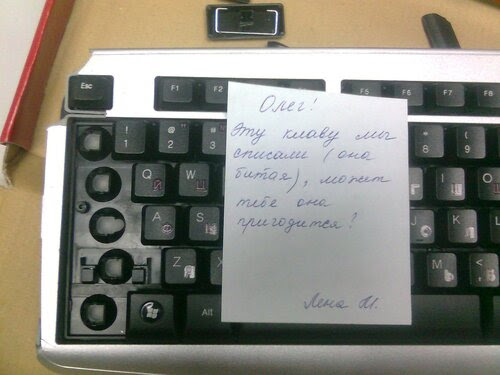 Олег!
Эту клаву мы
списали (она
битая), может
тебе она
пригодится?
Лена М.
Esc
F1 F2 F5 F6 F7 F8
! 1 @ 2 # 3 * 8 ( 9
Q W
A S
Z X M <
Alt